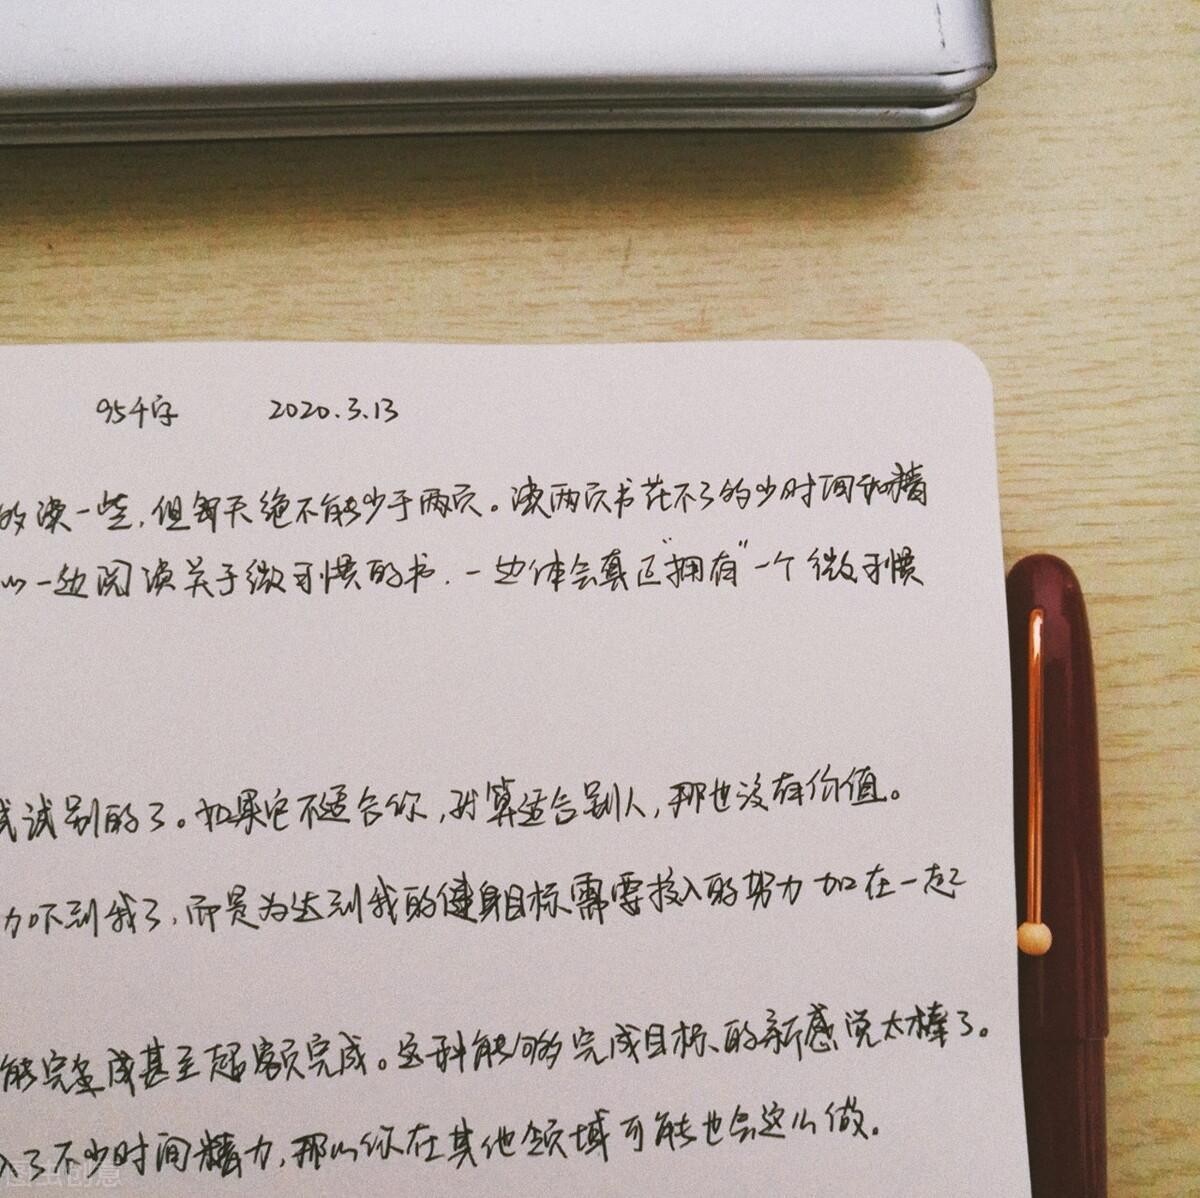 95千字 2020.3.13
的读一些,但每天绝不能少于两页。读两页书花不了的少时间和精
以一边阅读关于微习惯的书.一边体会真正"拥有"一个微习惯
试试别的了。如果它不适合你,就算适合别人,那也没有价值。
力吓到我了,而是为达到我的健身目标需要投入的努力加在一起
能完全成甚至超额完成。这种能够完成目标的新感觉太棒了。
入了不少时间精力,那么你在其他领域可能也会这么做.
图虫创意